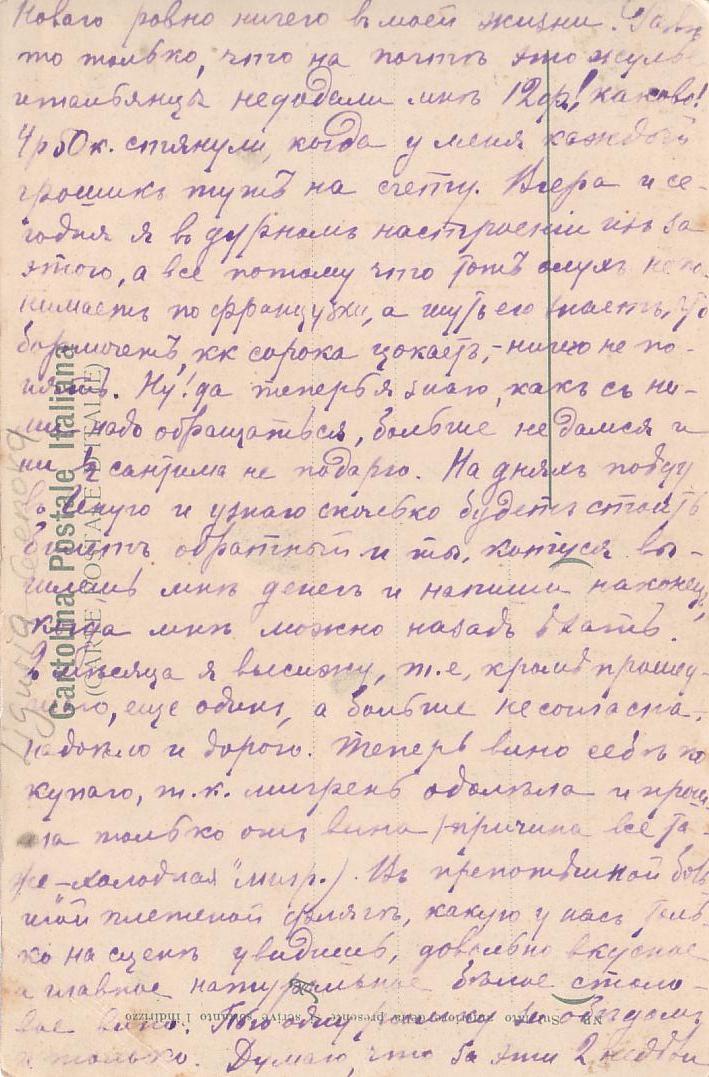 Новаго ровно ничего въ моей жизни.
то только, что на почтѣ это жулье
итальянцы недодали мнѣ 12 фр! каково!
4р 50к. стянули, когда у меня каждый
грошикъ тутъ на счету. Вчера и се-
годня я въ дурномъ настроеніи изъ за
этого, а все потому что тотъ олухъ непо-
нимаетъ по французски, а шутъ его знаетъ, что
бормочетъ, кк сорока цокаетъ, - ничего не по-
нять. Ну! да теперь я знаю, какъ съ ни-
ми надо обращаться, больше не дамся и
ни ½ сантима не подарю. На дняхъ поѣду
въ Геную и узнаю сколько будетъ стоить
билетъ обратный и ты, котуся вы-
шлешь мнѣ денегъ и напиши наконецъ,
когда мнѣ можно назадъ ѣхать.
2 мѣсяца я высижу, т.е, кромѣ прошед-
шаго, еще одинъ, а больше не согласна,
надоѣло и дорого. Теперь вино себѣ по
купаю, т.к. мигрень одолѣла и прош-
ла только отъ вина (причина все та
же - холодная "мигр.). Въ препотѣшной боль
шой плетеной флягѣ, какую у насъ толь-
ко на сценѣ увидишь, довольно вкусное
а главное натуральное бѣлое столо-
вое вино. Пью одну рюмку за обѣдомъ
и только. Думаю, что за эти 2 недѣли
Cartolina Postale Italiana
(CARTE POSTALE D'ITALIE)
NB. Sul lato anteriore della presente si scrive soltanto l'indirizzo
Liguria Genova